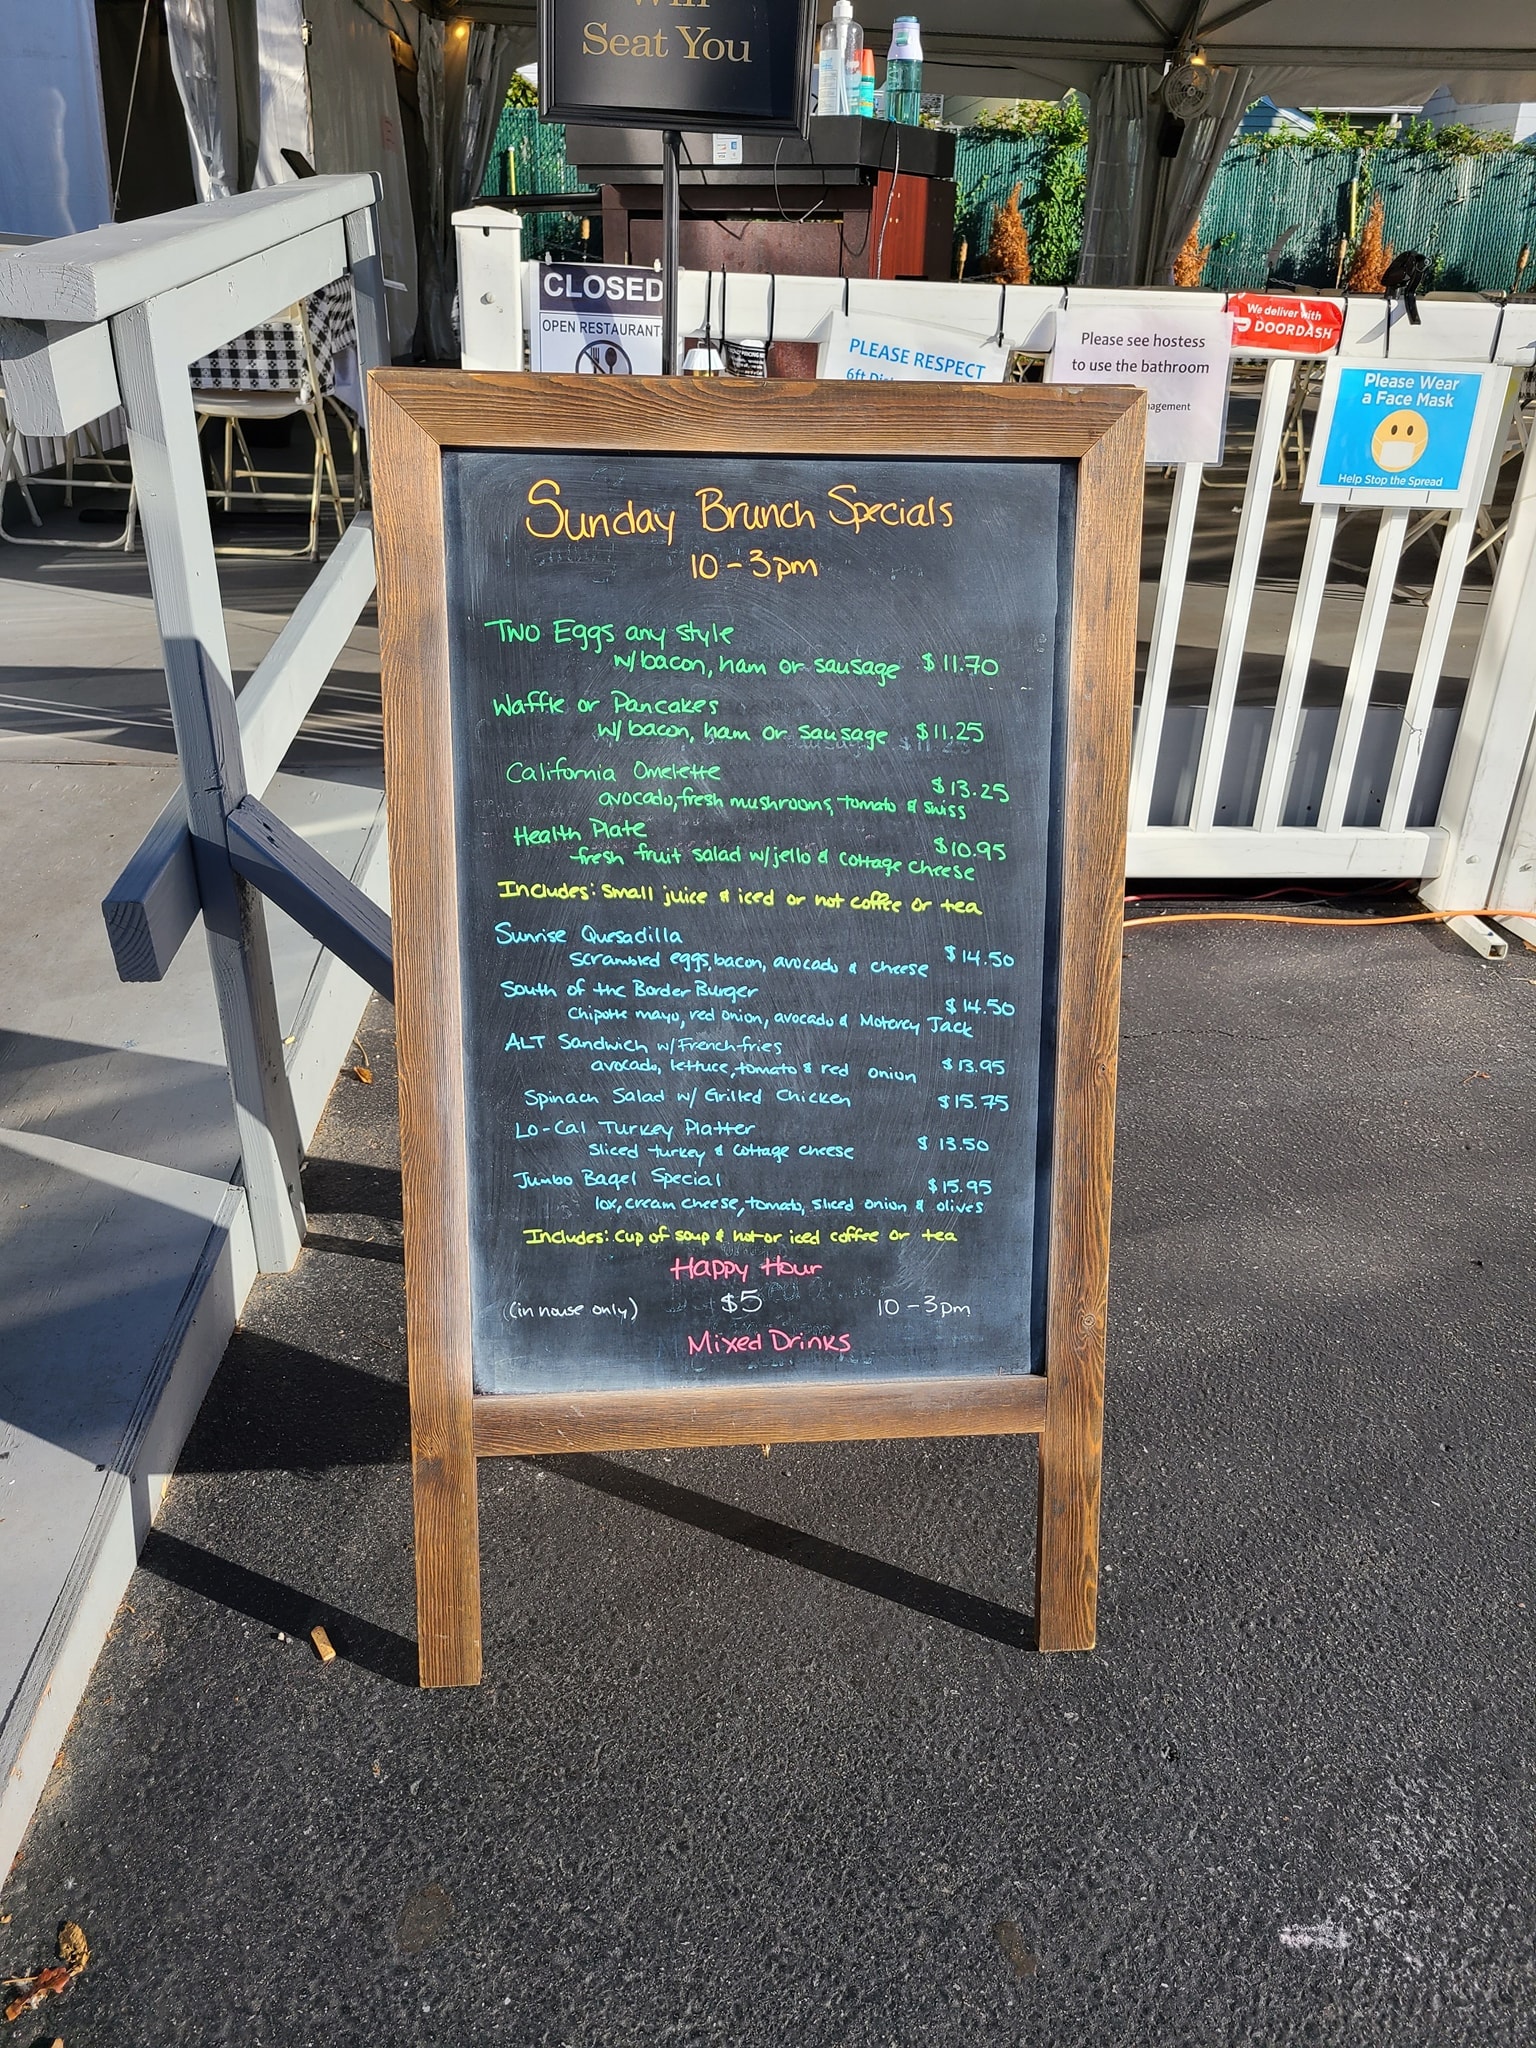 Seat You
CLOSED
OPEN RESTAURANT
PLEASE RESPECT
Please see hostess
to use the bathroom
We deliver with
DOORDASH
Please Wear
a Face Mask
Help Stop the Spread
Sunday Brunch Specials
10 - 3pm
Two Eggs any style
w/ bacon, ham or sausage $11.70
Waffle or Pancakes
w/ bacon, ham or sausage $11.25
California Omelette $13.25
avocado, fresh mushrooms, tomato & swiss
Health Plate $10.95
fresh fruit salad w/ jello & cottage cheese
Includes: Small juice & iced or hot coffee or tea
Sunrise Quesadilla $14.50
scrambled eggs, bacon, avocado & cheese
South of the Border Burger $14.50
Chipotle mayo, red onion, avocado & Moterey Jack
ALT Sandwich w/ French fries
avocado, lettuce, tomato & red onion $13.95
Spinach Salad w/ Grilled Chicken $15.75
Lo-Cal Turkey Platter $13.50
sliced turkey & cottage cheese
Jumbo Bagel Special $15.95
lox, cream cheese, tomato, sliced onion & olives
Includes: Cup of soup & hot or iced coffee or tea
Happy Hour
(in house only) $5 10 - 3pm
Mixed Drinks